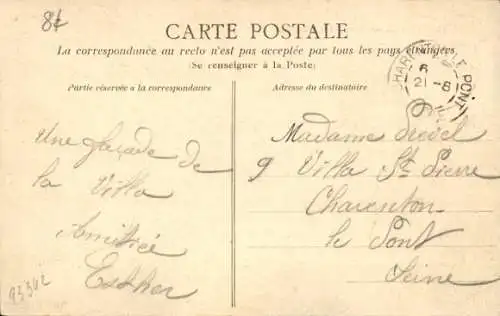 8t
CARTE POSTALE
La correspondance au recto n'est pas acceptée par tous les pays étrangers
(Se renseigner à la Poste)
Partie réservée a la correspondance
Adresse du destinataire
CHARENTON LE PONT
6
21-8
Une façade de
la Villa
Amitiée
Esther
93362
Madame Drevel
9 Villa St Pierre
Charenton
le Pont
Seine